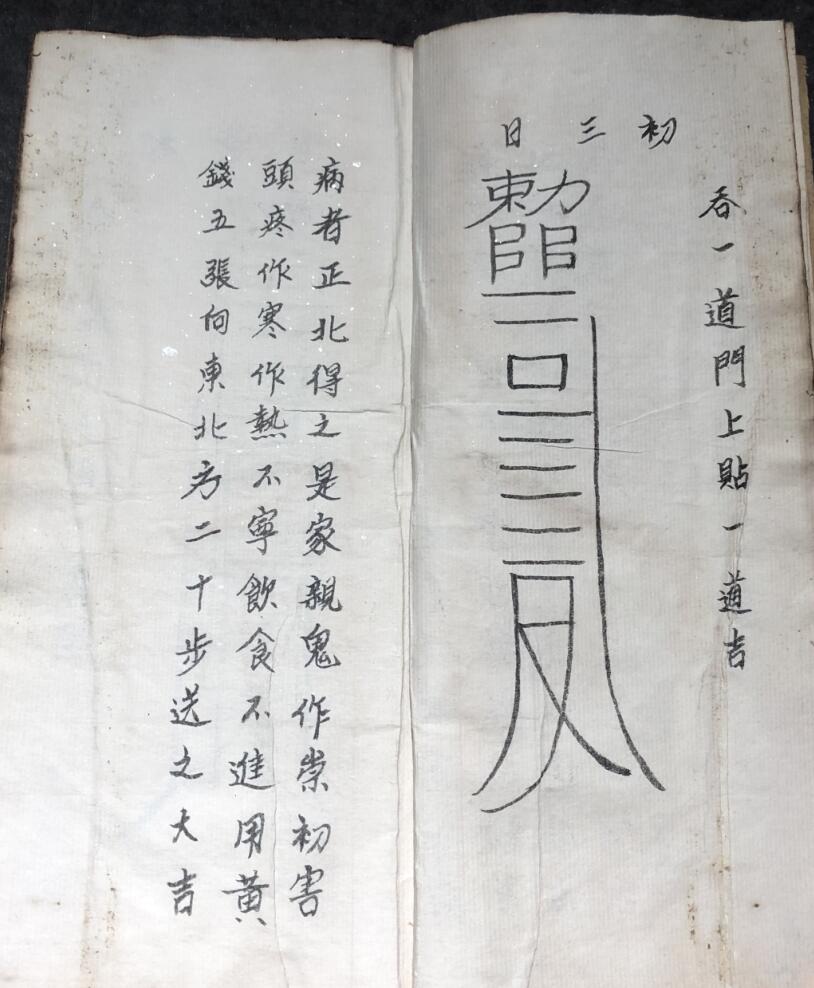 初三日
吞一道門上貼一道吉
勅
病者正北得之是家親鬼作祟初害
頭疼作寒作熱不寧飲食不進用黄
錢五張向東北方二十步送之大吉